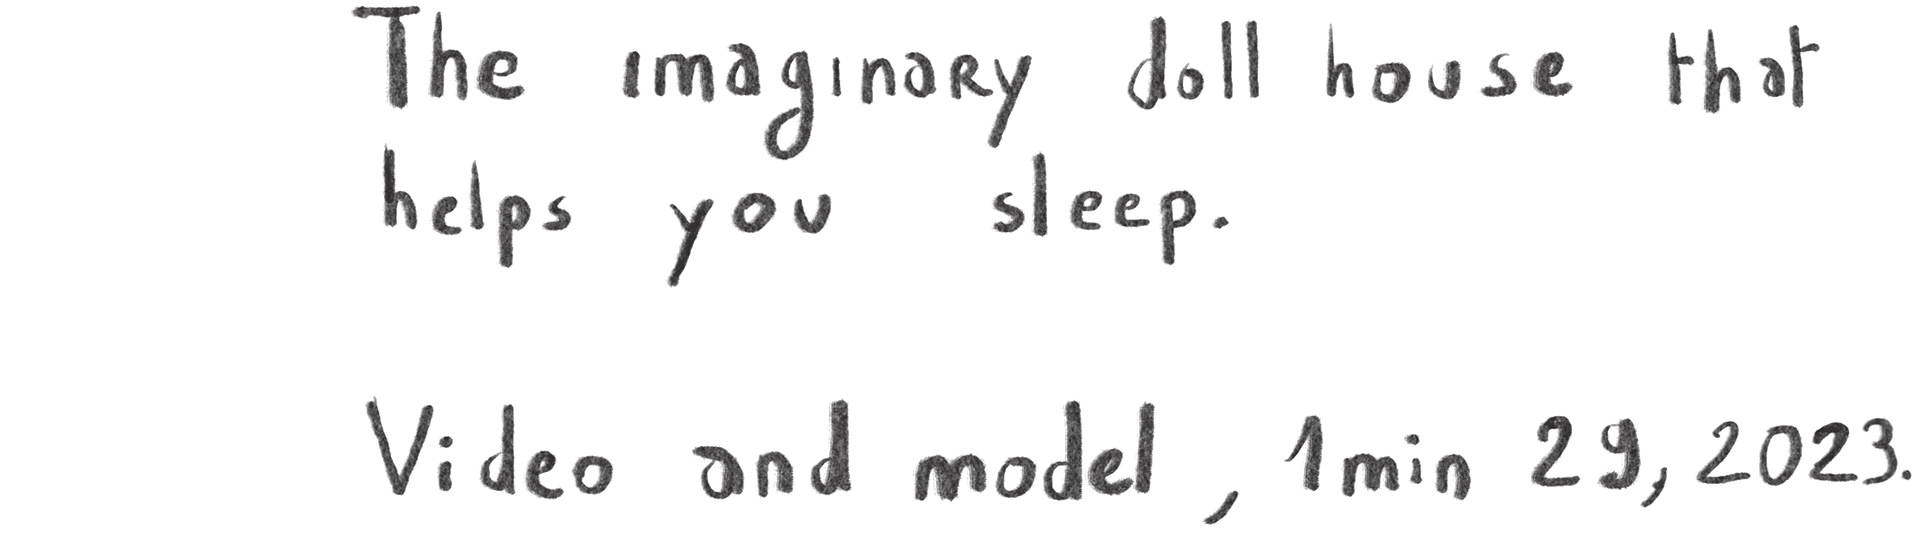 The imaginary doll house that
helps you sleep.
Video and model, 1min 29, 2023.